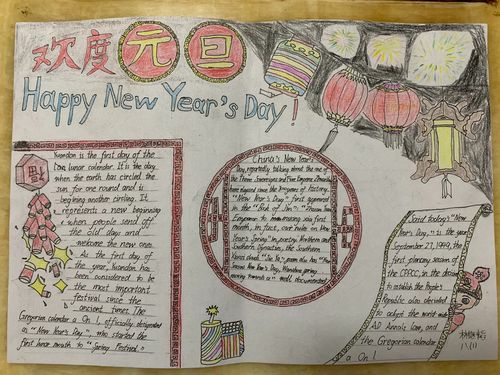 欢度元旦
Happy New Year's Day!
Yuandan is the first day of the
lunar calendar. It is the day
when the earth has circled the
sun for one round and is
beginning another circling. It
represents a new beginning
when people send off
the old days and
welcome the new ones.
As the first day of
the year, Yuandan has
been considered to be
the most important
festival since the
ancient times. The
Gregorian calendar a On 1, officially designated
as "New Year's Day", who started the
first lunar month to "Spring Festival."
China's New Year's
Day, reportedly talking about the one of
the Three Sovereigns and Five Emperors Zhuanxu
have elapsed since the
history.
"New Year's Day" first appeared
in the "Book of Jin":
Emperor to
month, in fact, our
in New
Year's Spring" in poetry Northern and
Southern Dynasties, the Southern
also has
New Year Day,
spring
well documented
Said today's "New
Year's Day," is the year
September 27, 1949, the
first plenary session of
the CPPCC, in the decision
to establish the People's
Republic also decided
to adopt the world-wide
AD Annals law, and
The Gregorian calendar
a On 1
福
八(1)